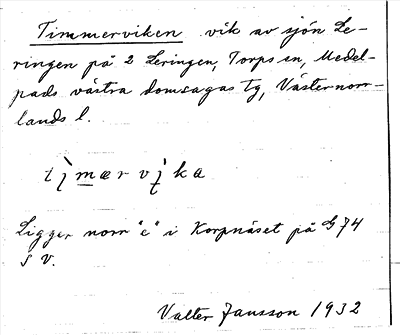 Timmerviken vik av sjön Le-
ringen på 2 Leringen, Torps sn, Medel-
pads västra domsagas tg, Västernorr-
lands l.
tìmær vi̯ka
Ligger norr "e" i Korpnäset på G 74
S V.
Valter Jansson 1932